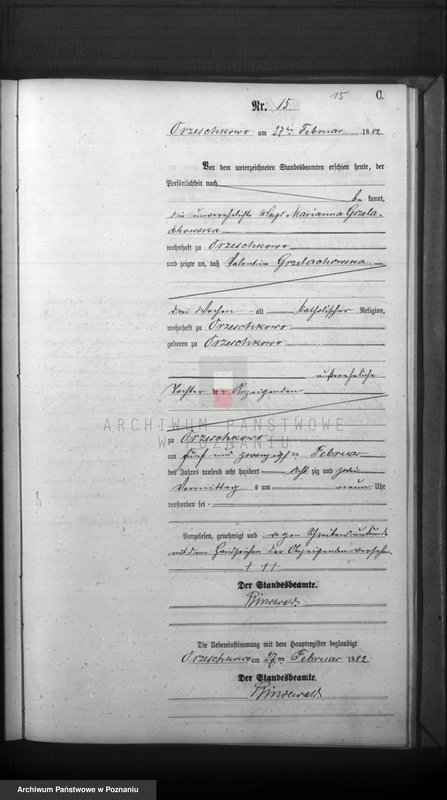 15
C.
Nr. 15.
Orzeschkowo am 27ten Februar 1882.
Vor dem unterzeichneten Standesbeamten erschien heute, der
Persönlichkeit nach
be kannt,
die unverehelichte Magd Marianna Grzela-
chowska
wohnhaft zu Orzeschkowo
und zeigte an, daß Valentine Grzelachowska
drei Wochen alt katholischer Religion,
wohnhaft zu Orzeschkowo
geboren zu Orzeschkowo
außereheliche
Tochter der Anzeigenden
zu Orzeschkowo
am fünf und zwanzigsten Februar
des Jahres tausend acht hundert acht zig und zwei
Vormittag s um neun Uhr
verstorben sei
Vorgelesen, genehmigt und wegen Schreibensunkunde
mit dem Handzeichen der Anzeigenden versehen.
† † †
Der Standesbeamte.
Die Uebereinstimmung mit dem Hauptregister beglaubigt
Orzeschkowo am 27ten Februar 1882
Der Standesbeamte.
ARCHIWUM PAŃSTWOWE
W POZNANIU
Archiwum Państwowe w Poznaniu